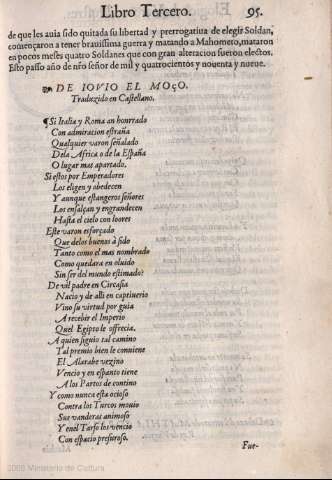 Libro Tercero. 95.
de que les auia sido quitada su libertad y prerrogatiua de elegir Soldan,
començaron a tener brauissima guerra y matando a Mahometo, mataron
en pocos meses quatro Soldanes que con gran alteracion fueron electos.
Esto passo año de nro señor de mil y quatrocientos y nouenta y nueue.
DE IOVIO EL MOÇO.
Traduzido en Castellano.
¶Si Italia y Roma an honrrado
Con admiracion estraña
Qualquier varon señalado
Dela Africa o de la España
O lugar mas apartado.
Si estos por Emperadores
Los eligen y obedecen
Y aunque estangeros señores
Los ensalçan y engrandecen
Hasta el cielo con loores
Este varon esforçado
Que delos buenos à sido
Tanto como el mas nombrado
Como quedara en oluido
Sin ser del mundo estimado?
De vil padre en Circasia
Nacio y de alli en captiuerio
Vino su virtud por guia
A recebir el Imperio
Quel Egipto le offrecia.
A quien siguio tal camino
Tal premio bien le conuiene
El Alarabe vezino
Vencio y en espanto tiene
A los Partos de contino
Y como nunca esta ocioso
Contra los Turcos mouio
Sus vanderas animoso
Y enel Tarso los vencio
Con espacio presuroso.
Fue-
2008 Ministerio de Cultura